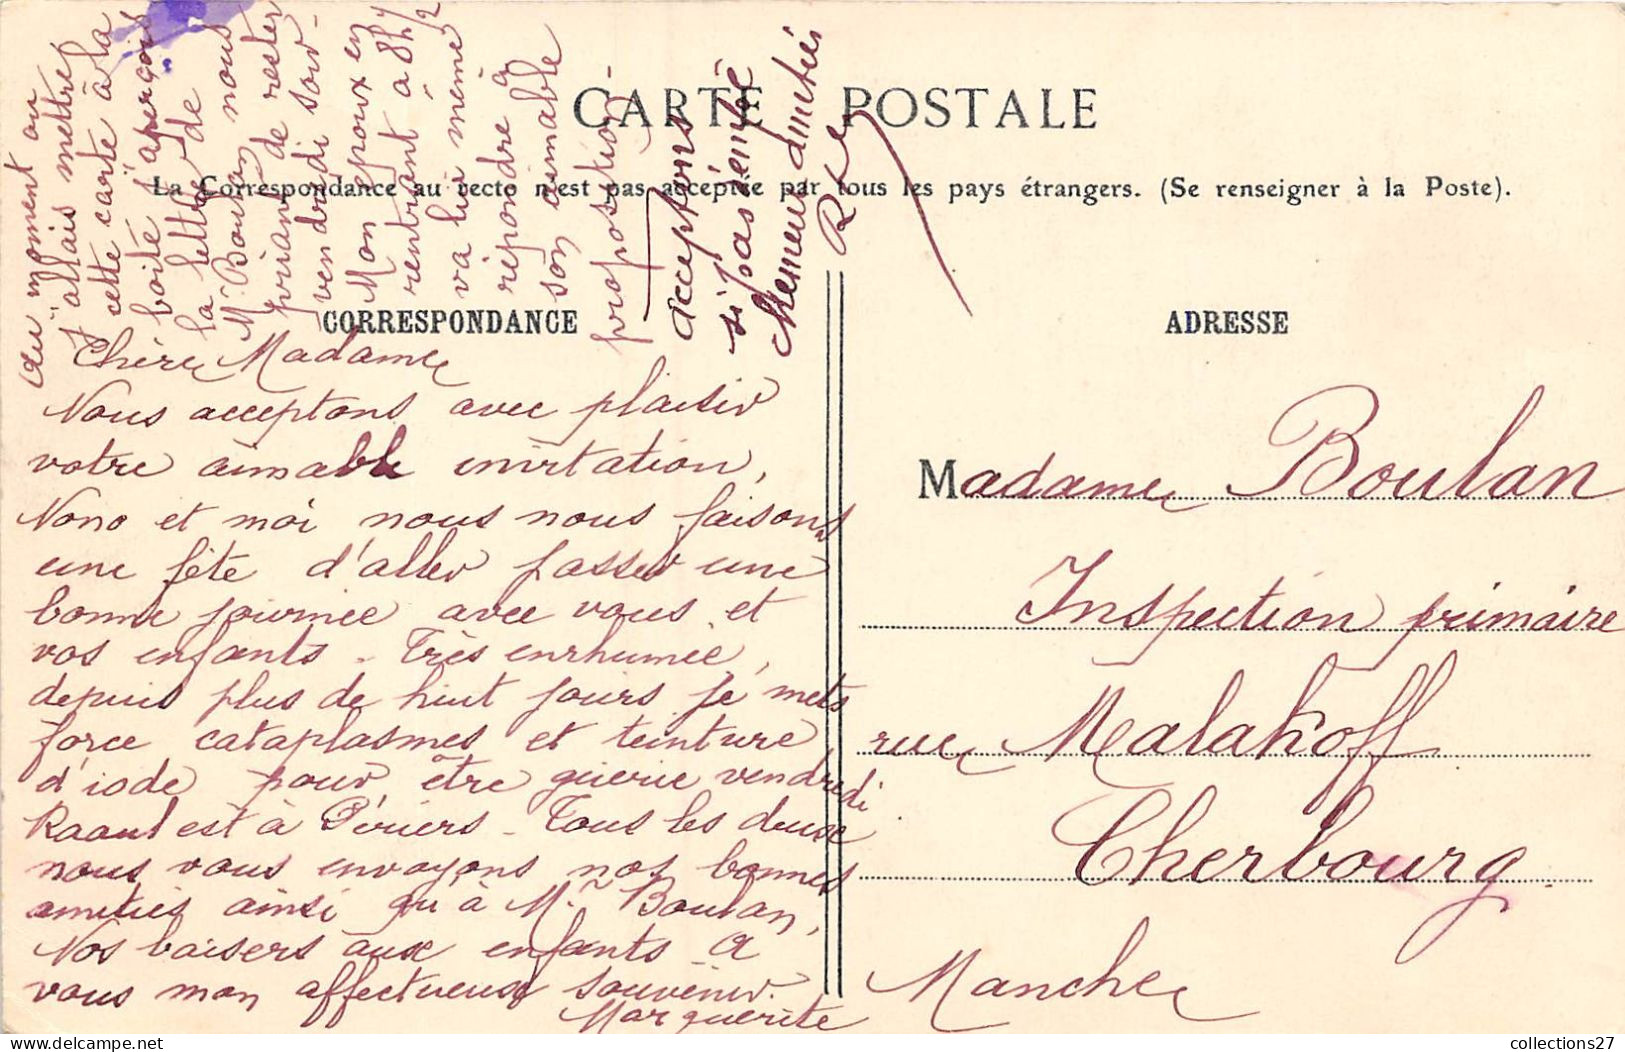 CARTE POSTALE
La Correspondance au recto n'est pas acceptée par tous les pays étrangers. (Se renseigner à la Poste).
CORRESPONDANCE
Chère Madame
Nous acceptons avec plaisir
votre aimable invitation,
Nono et moi nous nous faisons
une fête d'aller passer une
bonne journée avec vous et
vos enfants. Très enrhumée,
depuis plus de huit jours je mets
force cataplasmes et teinture
d'iode pour être guérie vendredi
Raoul est à Périers. Tous les deux
nous vous envoyons nos bonnes
amitiés ainsi qu'à Mr Boulan,
Nos baisers aux enfants. A
vous mon affectueux souvenir.
Marguerite
Au moment où
j'allais mettre
cette carte à la
boîte j'aperçois
la lettre de
Mr Boulan nous
priant de rester
vendredi soir -
Mon époux en
rentrant à 8h 1/2
va lui même
répondre à
son aimable
proposition -
acceptons
si pas
amitiés
ADRESSE
Madame Boulan
Inspection primaire
rue Malakoff
Cherbourg
Manche
collections27